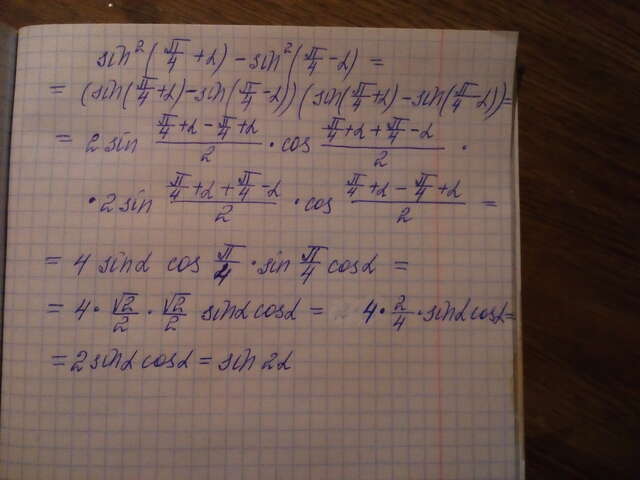 sin²(π/4 + α) - sin²(π/4 - α) =
= (sin(π/4 + α) - sin(π/4 - α)) (sin(π/4 + α) - sin(π/4 - α)) =
= 2 sin (π/4 + α - π/4 + α)/2 · cos (π/4 + α + π/4 - α)/2 ·
· 2 sin (π/4 + α + π/4 - α)/2 · cos (π/4 + α - π/4 + α)/2 =
= 4 sinα cos π/4 · sin π/4 cosα =
= 4 · √2/2 · √2/2 sinα cosα = 4 · 2/4 · sinα cosα =
= 2 sinα cosα = sin 2α